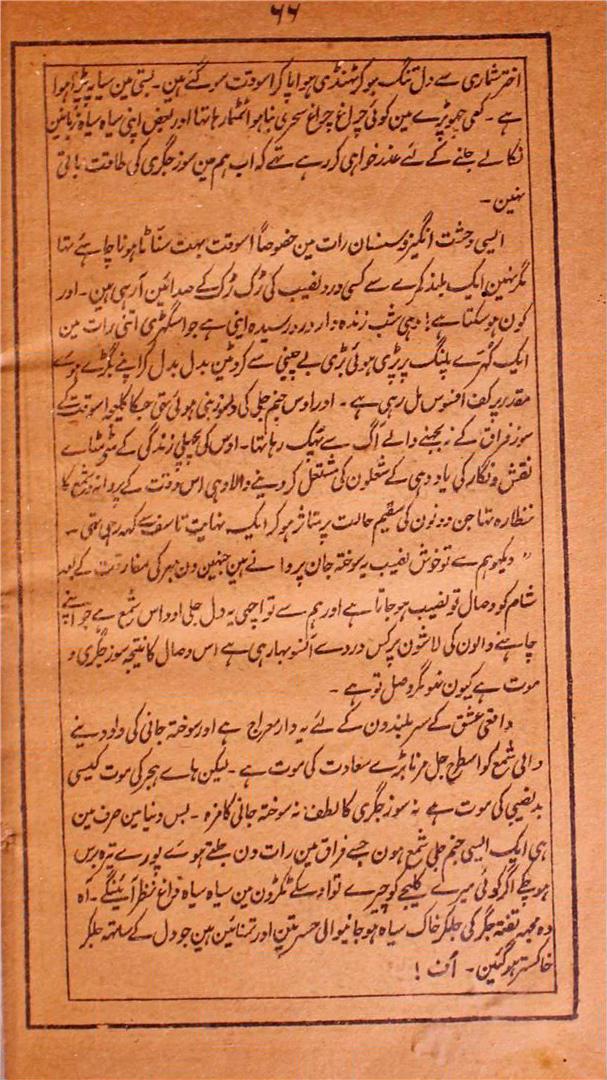 ۶۶
اختر شماری سے دل تنگ ہوکر ٹھنڈی ہوا پاکر اسوقت سو گئے ہین۔ بستی مین سیاپہ پڑا ہوا
ہے۔ کسی جھوپڑے مین کوئی چراغ چراغ سحری بنا ہوا ٹمٹما رہا تھا اور بعض اپنی سیاہ سیاہ زبانین
نکالے جلنے کے لئے عذر خواہی کر رہے تھے کہ اب ہم مین سوز جگری کی طاقت باقی
نہین۔
ایسی وحشت انگیز و سنسان رات مین خصوصاً اسوقت بہت سناٹا ہونا چاہئے تھا
مگر نہین ایک بلند کمرے سے کسی درد نصیب کی رُک رُک کے صدائین آرہی ہین۔ اور
کون ہو سکتا ہے! وہی شب زندہ دار درد رسیدہ اپنی ہے جو اسگھڑی اتنی رات مین
ایک پلنگ پر پڑی ہوئی بڑی بے چینی سے کروٹین بدل بدل کر اپنے بگڑے ہوے
مقدر پر کف افسوس مل رہی ہے۔ اور اوس جنم جلی کی دلسوز بنی ہوئی تھی جسکا کلیجا اسوقت کے
سوز فراق کے نہ بجھنے والے آگ سے پھک رہا تھا۔ اوس کی پچھلی زندگی کے مٹے مٹاے
نقش و نگار کی یاد دہی کے شعلون کی مشتعل کر دینے والا وہی اس وقت کے پروانہ و شمع کا
نظارہ تھا جن دونون کی سقیم حالت پر متاثر ہوکر ایک نہایت تاسف سے کہہ رہی تھی۔
" دیکھو ہم سے تو خوش نصیب یہ سوختہ جان پروانے ہین جنہین دن بھر کی مفارقت کے بعد
شام کو وصال تو نصیب ہو جاتا ہے اور ہم سے تو اچھی یہ دل جلی اوداس شمع ہے جو اپنے
چاہنے والون کی لاشون پر کس درد سے آنسو بہا رہی ہے اس وصال کا نتیجہ سوز جگری و
موت ہے کیون نہو مگر وصل تو ہے۔
واقعی عشق کے سر بلندون کے لئے یہ دار معراج ہے اور سوختہ جانی کی داد دینے
والی شمع کو اسطرح جل مرنا بڑے سعادت کی موت ہے۔ لیکن ہاے ہجر کی موت کیسی
بد نصیبی کی موت ہے نہ سوز جگری کا لطف نہ سوختہ جانی کا مزہ۔ بس دنیا مین صرف مین
ہی ایک ایسی جنم جلی شمع ہون جسے فراق مین رات دن جلتے ہوے پورے تیرہ برس
ہو چکے اگر کوئی میرے کلیجے کو چیرے تو اوسکے ٹکڑون مین سیاہ سیاہ داغ نظر آئینگے۔ آہ
وہ مجھہ تفتہ جگر کی جلکر خاک سیاہ ہو جانیوالی حسرتین اور تمنائین ہین جو دل کے ساتھہ جلکر
خاکستر ہو گئین۔ اُف!